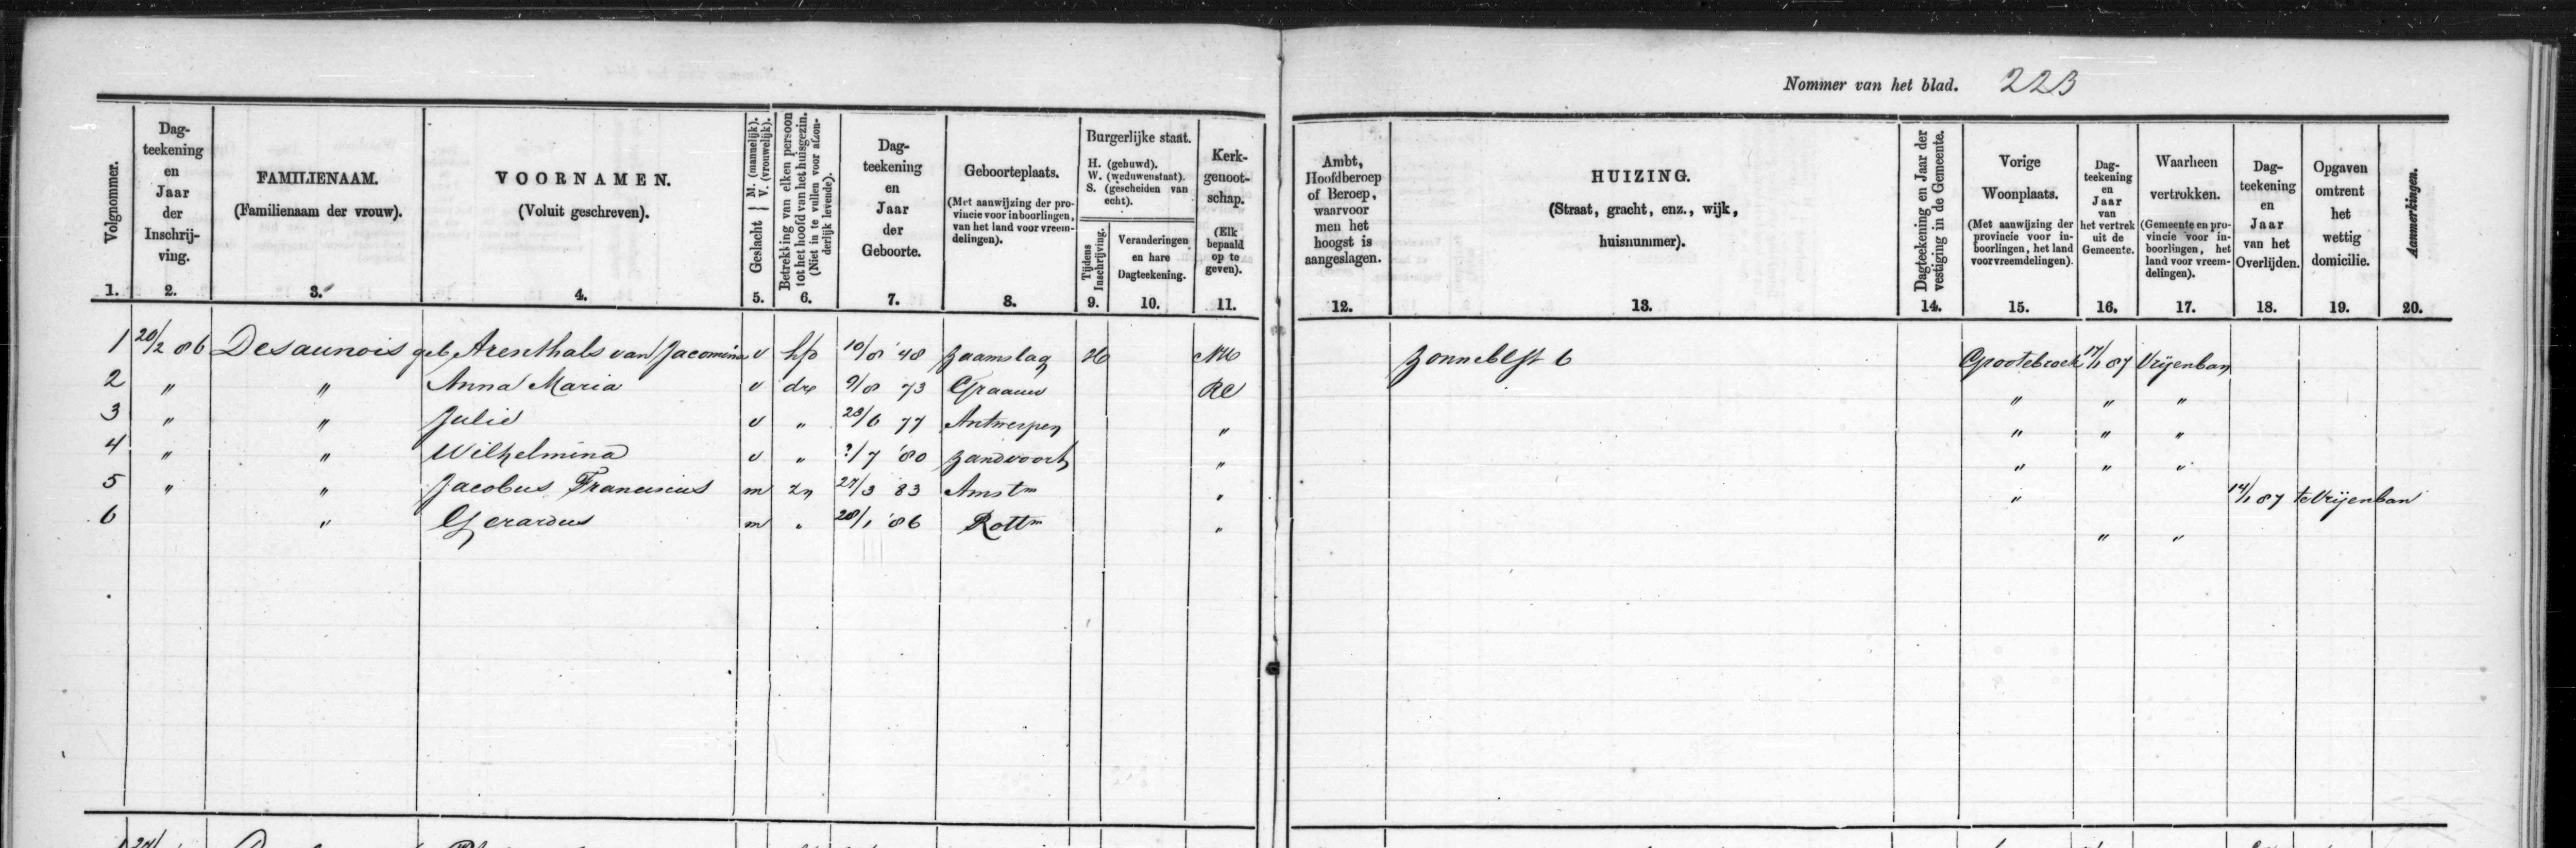 Nommer van het blad. 223
Volgnommer. 1.
Dag-teekening en Jaar der Inschrij-ving. 2.
FAMILIENAAM. (Familienaam der vrouw). 3.
VOORNAMEN. (Voluit geschreven). 4.
Geslacht { M. (mannelijk). V. (vrouwelijk). 5.
Betrekking van elken persoon tot het hoofd van het huisgezin. (Niet in te vullen voor afzon-derlijk levende). 6.
Dag-teekening en Jaar der Geboorte. 7.
Geboorteplaats. (Met aanwijzing der pro-vincie voor inboorlingen, van het land voor vreem-delingen). 8.
Burgerlijke staat. H. (gehuwd). W. (weduwenstaat). S. (gescheiden van echt).
Tijdens Inschrijving. 9.
Veranderingen en hare Dagteekening. 10.
Kerk-genoot-schap. (Elk bepaald op te geven). 11.
Ambt, Hoofdberoep of Beroep, waarvoor men het hoogst is aangeslagen. 12.
HUIZING. (Straat, gracht, enz., wijk, huisnummer). 13.
Dagteekening en Jaar der vestiging in de Gemeente. 14.
Vorige Woonplaats. (Met aanwijzing der provincie voor in-boorlingen, het land voor vreemdelingen). 15.
Dag-teekening en Jaar van het vertrek uit de Gemeente. 16.
Waarheen vertrokken. (Gemeente en pro-vincie voor in-boorlingen, het land voor vreem-delingen). 17.
Dag-teekening en Jaar van het Overlijden. 18.
Opgaven omtrent het wettig domicilie. 19.
Aanmerkingen. 20.
1 20/2 86 Desaunois geb Arenthals van Jacomina v hfd 10/8 '48 Zaamslag H NH Zonneblst 6 Grootebroek 17/1 87 Vrijenban
2 " " Anna Maria v dr 9/8 73 Graauw RC " " "
3 " " Julie v " 23/6 77 Antwerpen " " " "
4 " " Wilhelmina v " ?/7 '80 Zandvoort " " " "
5 " " Jacobus Franciscus m zn 27/3 83 Amstm " " 14/1 87 te Vrijenban
6 " Gerardus m " 28/1 '86 Rottm " " "